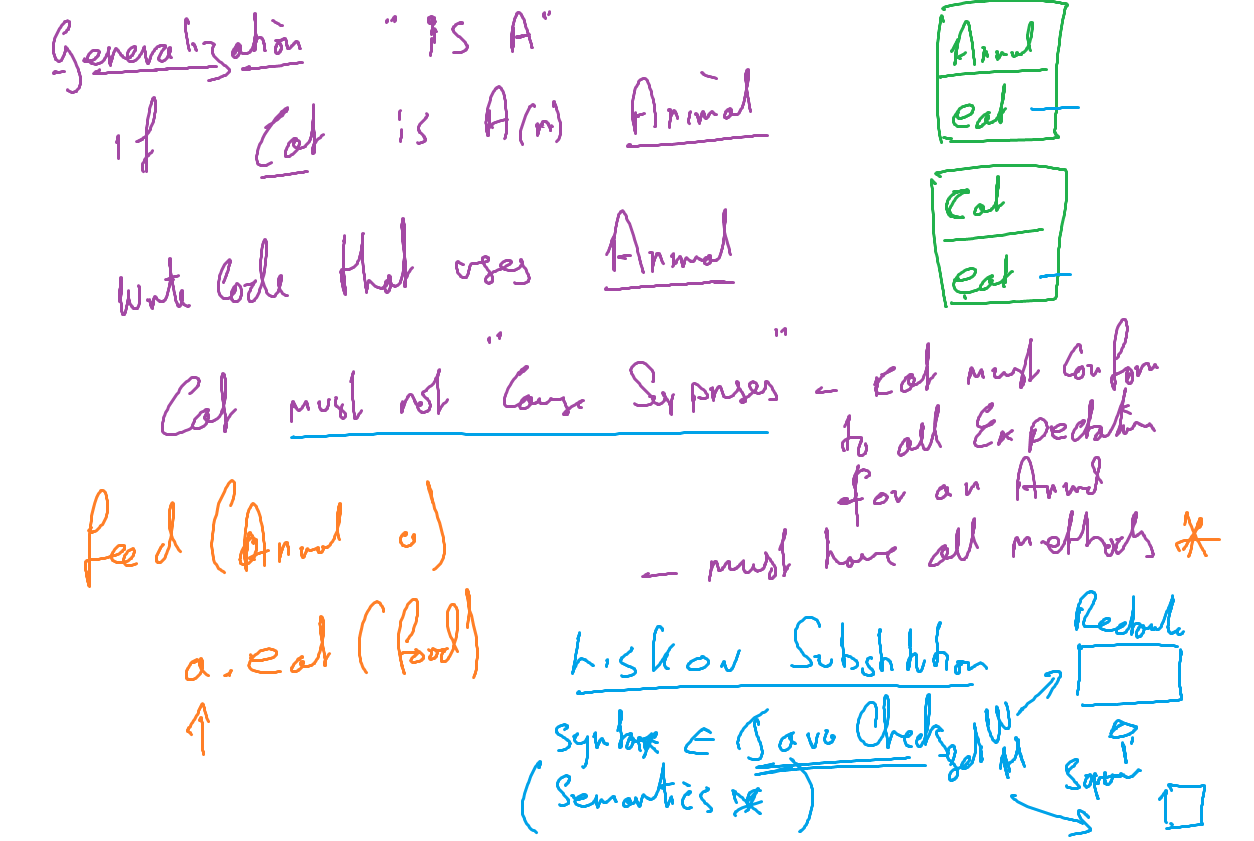 Generalization "IS A"
if Cat is A(n) Animal
Animal
eat
Cat
eat
Write Code that uses Animal
Cat must not "Cause Surprises" – Cat must Conform
to all Expectation
for an Animal
– must have all methods *
feed (Animal a)
a.eat (food)
Liskov Substitution
Syntax ∈ Java Check
(Semantics *)
set W
H
Rectangle
Square